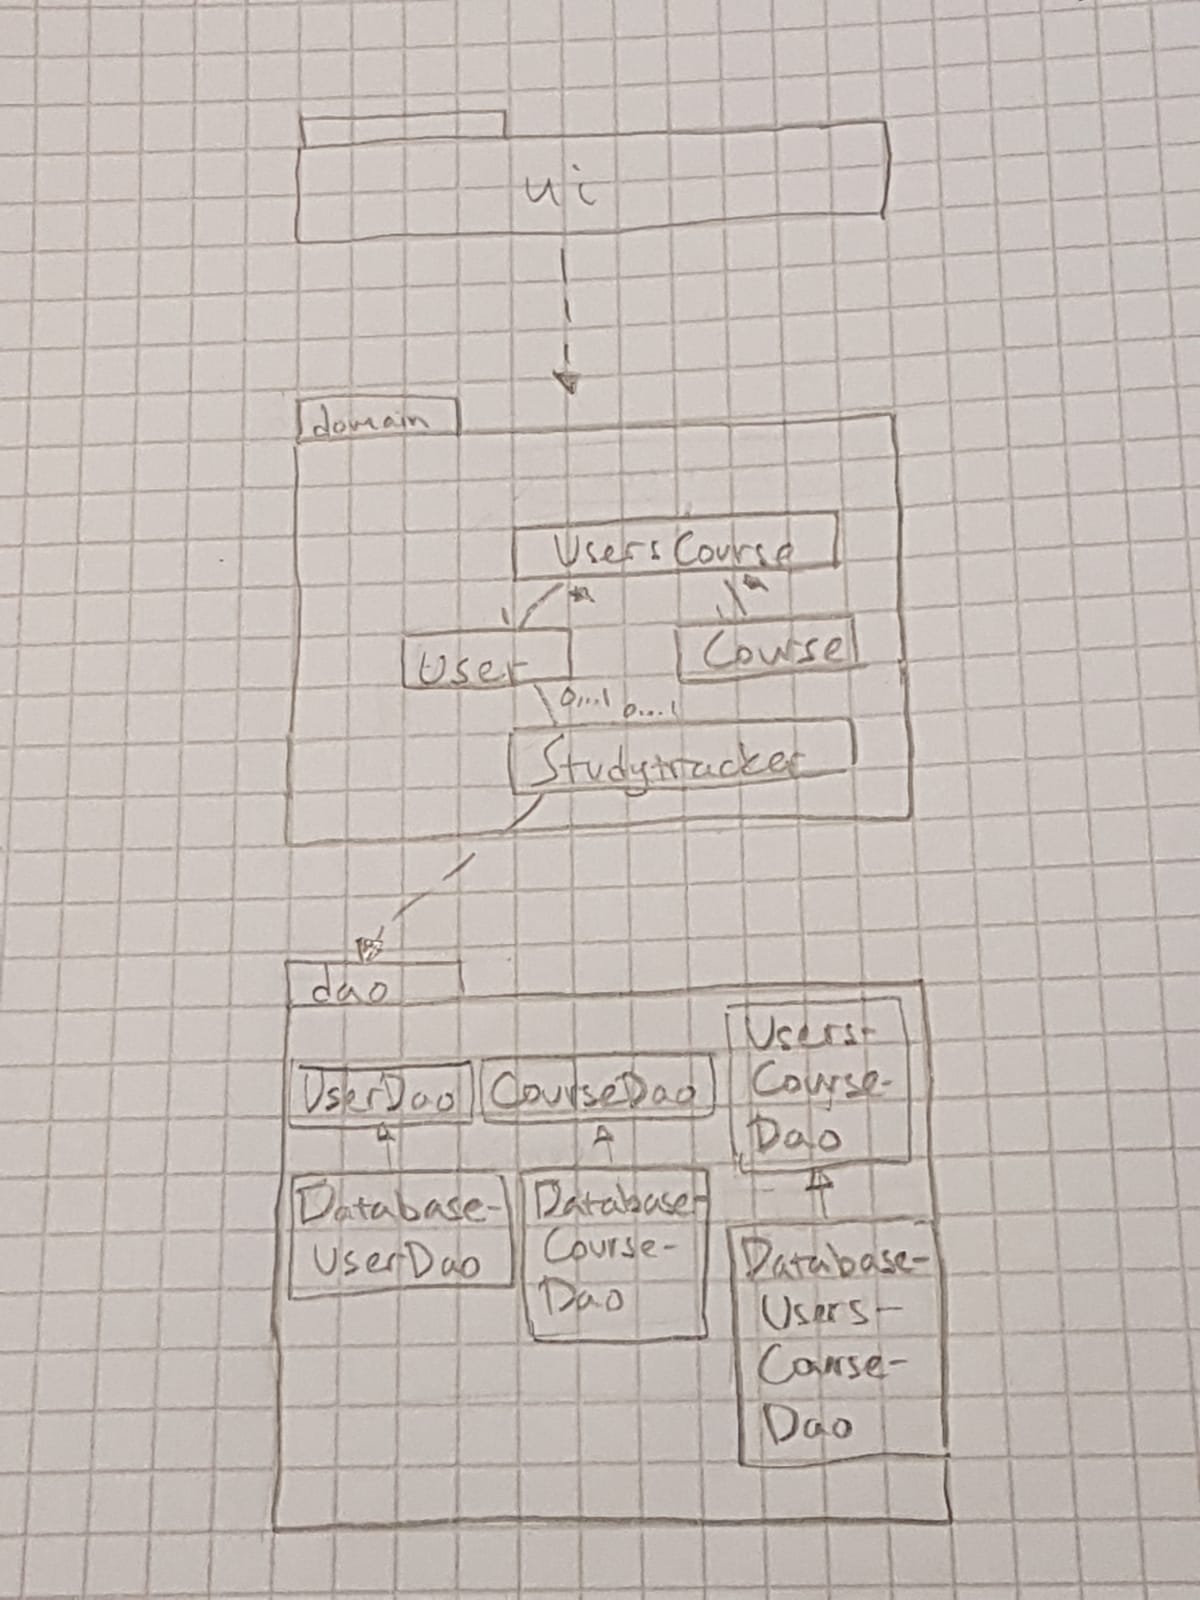 ui
domain
UsersCourse
1 * *
User Course
0...1 0...1
Studytracker
dao
UserDao
CourseDao
Users-
Course-
Dao
Database-
UserDao
Database-
Course-
Dao
Database-
Users-
Course-
Dao